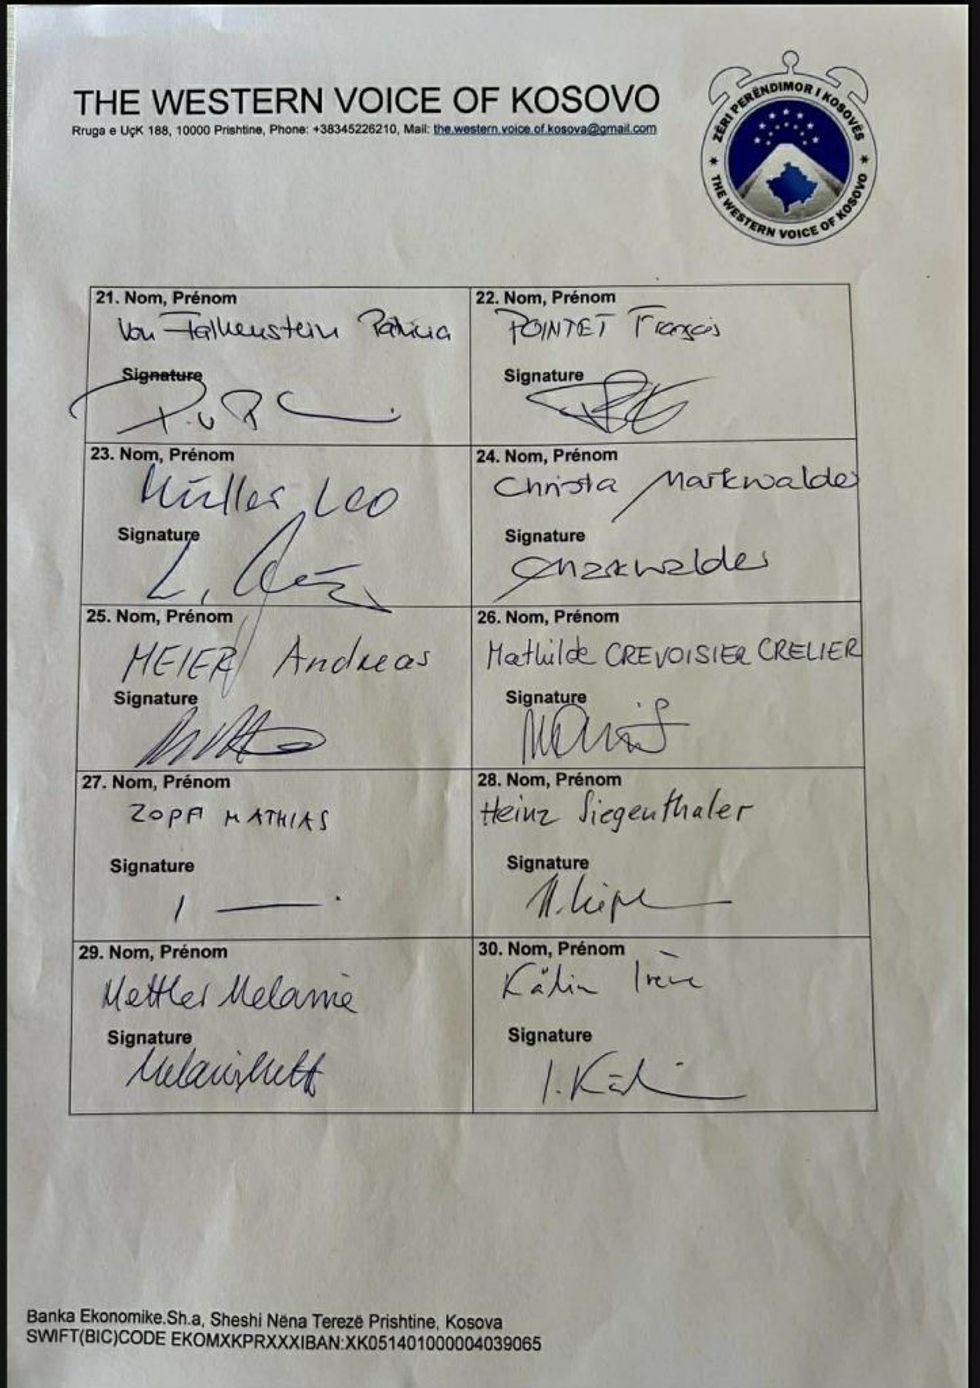 THE WESTERN VOICE OF KOSOVO
Rruga e UçK 188, 10000 Prishtine, Phone: +38345226210, Mail: the.western.voice.of.kosova@gmail.com
ZËRI PERËNDIMOR I KOSOVËS
THE WESTERN VOICE OF KOSOVO
21. Nom, Prénom
Von Falkenstein Patricia
Signature
22. Nom, Prénom
POINTET François
Signature
23. Nom, Prénom
Müller Leo
Signature
24. Nom, Prénom
Christa Markwalder
Signature
Markwalder
25. Nom, Prénom
MEIER Andreas
Signature
26. Nom, Prénom
Mathilde CREVOISIER CRELIER
Signature
27. Nom, Prénom
ZOPFI MATHIAS
Signature
28. Nom, Prénom
Heinz Siegenthaler
Signature
29. Nom, Prénom
Mettler Melanie
Signature
30. Nom, Prénom
Kälin Irène
Signature
I. Käli
Banka Ekonomike.Sh.a, Sheshi Nëna Terezë Prishtine, Kosova
SWIFT(BIC)CODE EKOMXKPRXXXIBAN:XK051401000004039065